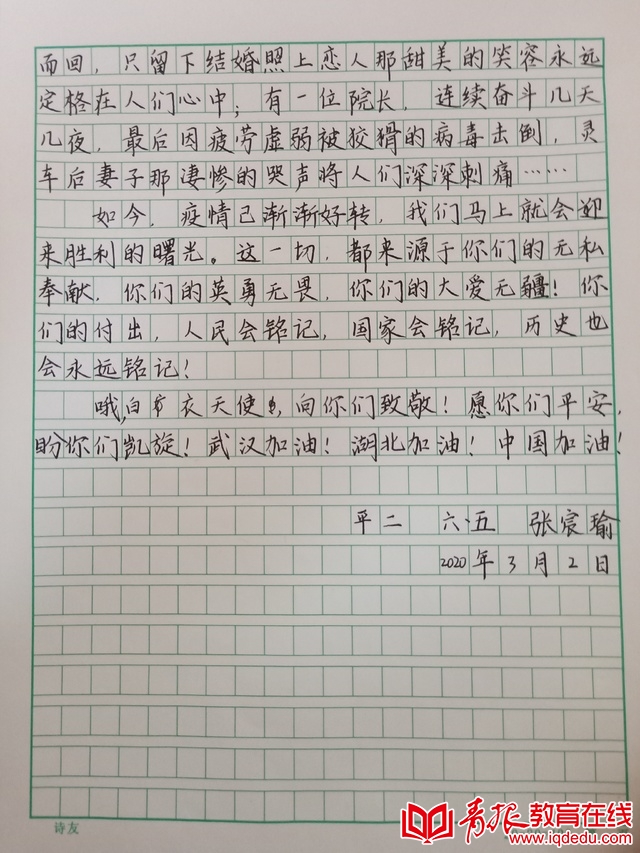 而回，只留下结婚照上恋人那甜美的笑容永远
定格在人们心中；有一位院长，连续奋斗几天
几夜，最后因疲劳虚弱被狡猾的病毒击倒，灵
车后妻子那凄惨的哭声将人们深深刺痛……
如今，疫情已渐渐好转，我们马上就会迎
来胜利的曙光。这一切，都来源于你们的无私
奉献，你们的英勇无畏，你们的大爱无疆！你
们的付出，人民会铭记，国家会铭记，历史也
会永远铭记！
哦，白衣天使，向你们致敬！愿你们平安，
盼你们凯旋！武汉加油！湖北加油！中国加油！
平二 六·五 张宸瑜
2020年3月2日
诗友
青报教育在线
www.iqdedu.com